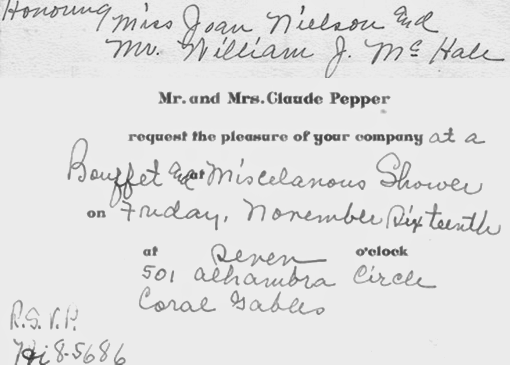 Honoring Miss Joan Nielson and
Mr. William J. Mc Hale
Mr. and Mrs. Claude Pepper
request the pleasure of your company at a
Bouffet and at Miscelanous Shower
on Friday, November Sixteenth
at Seven o'clock
501 alhambra Circle
Coral Gables
R.S.V.P.
8-5686